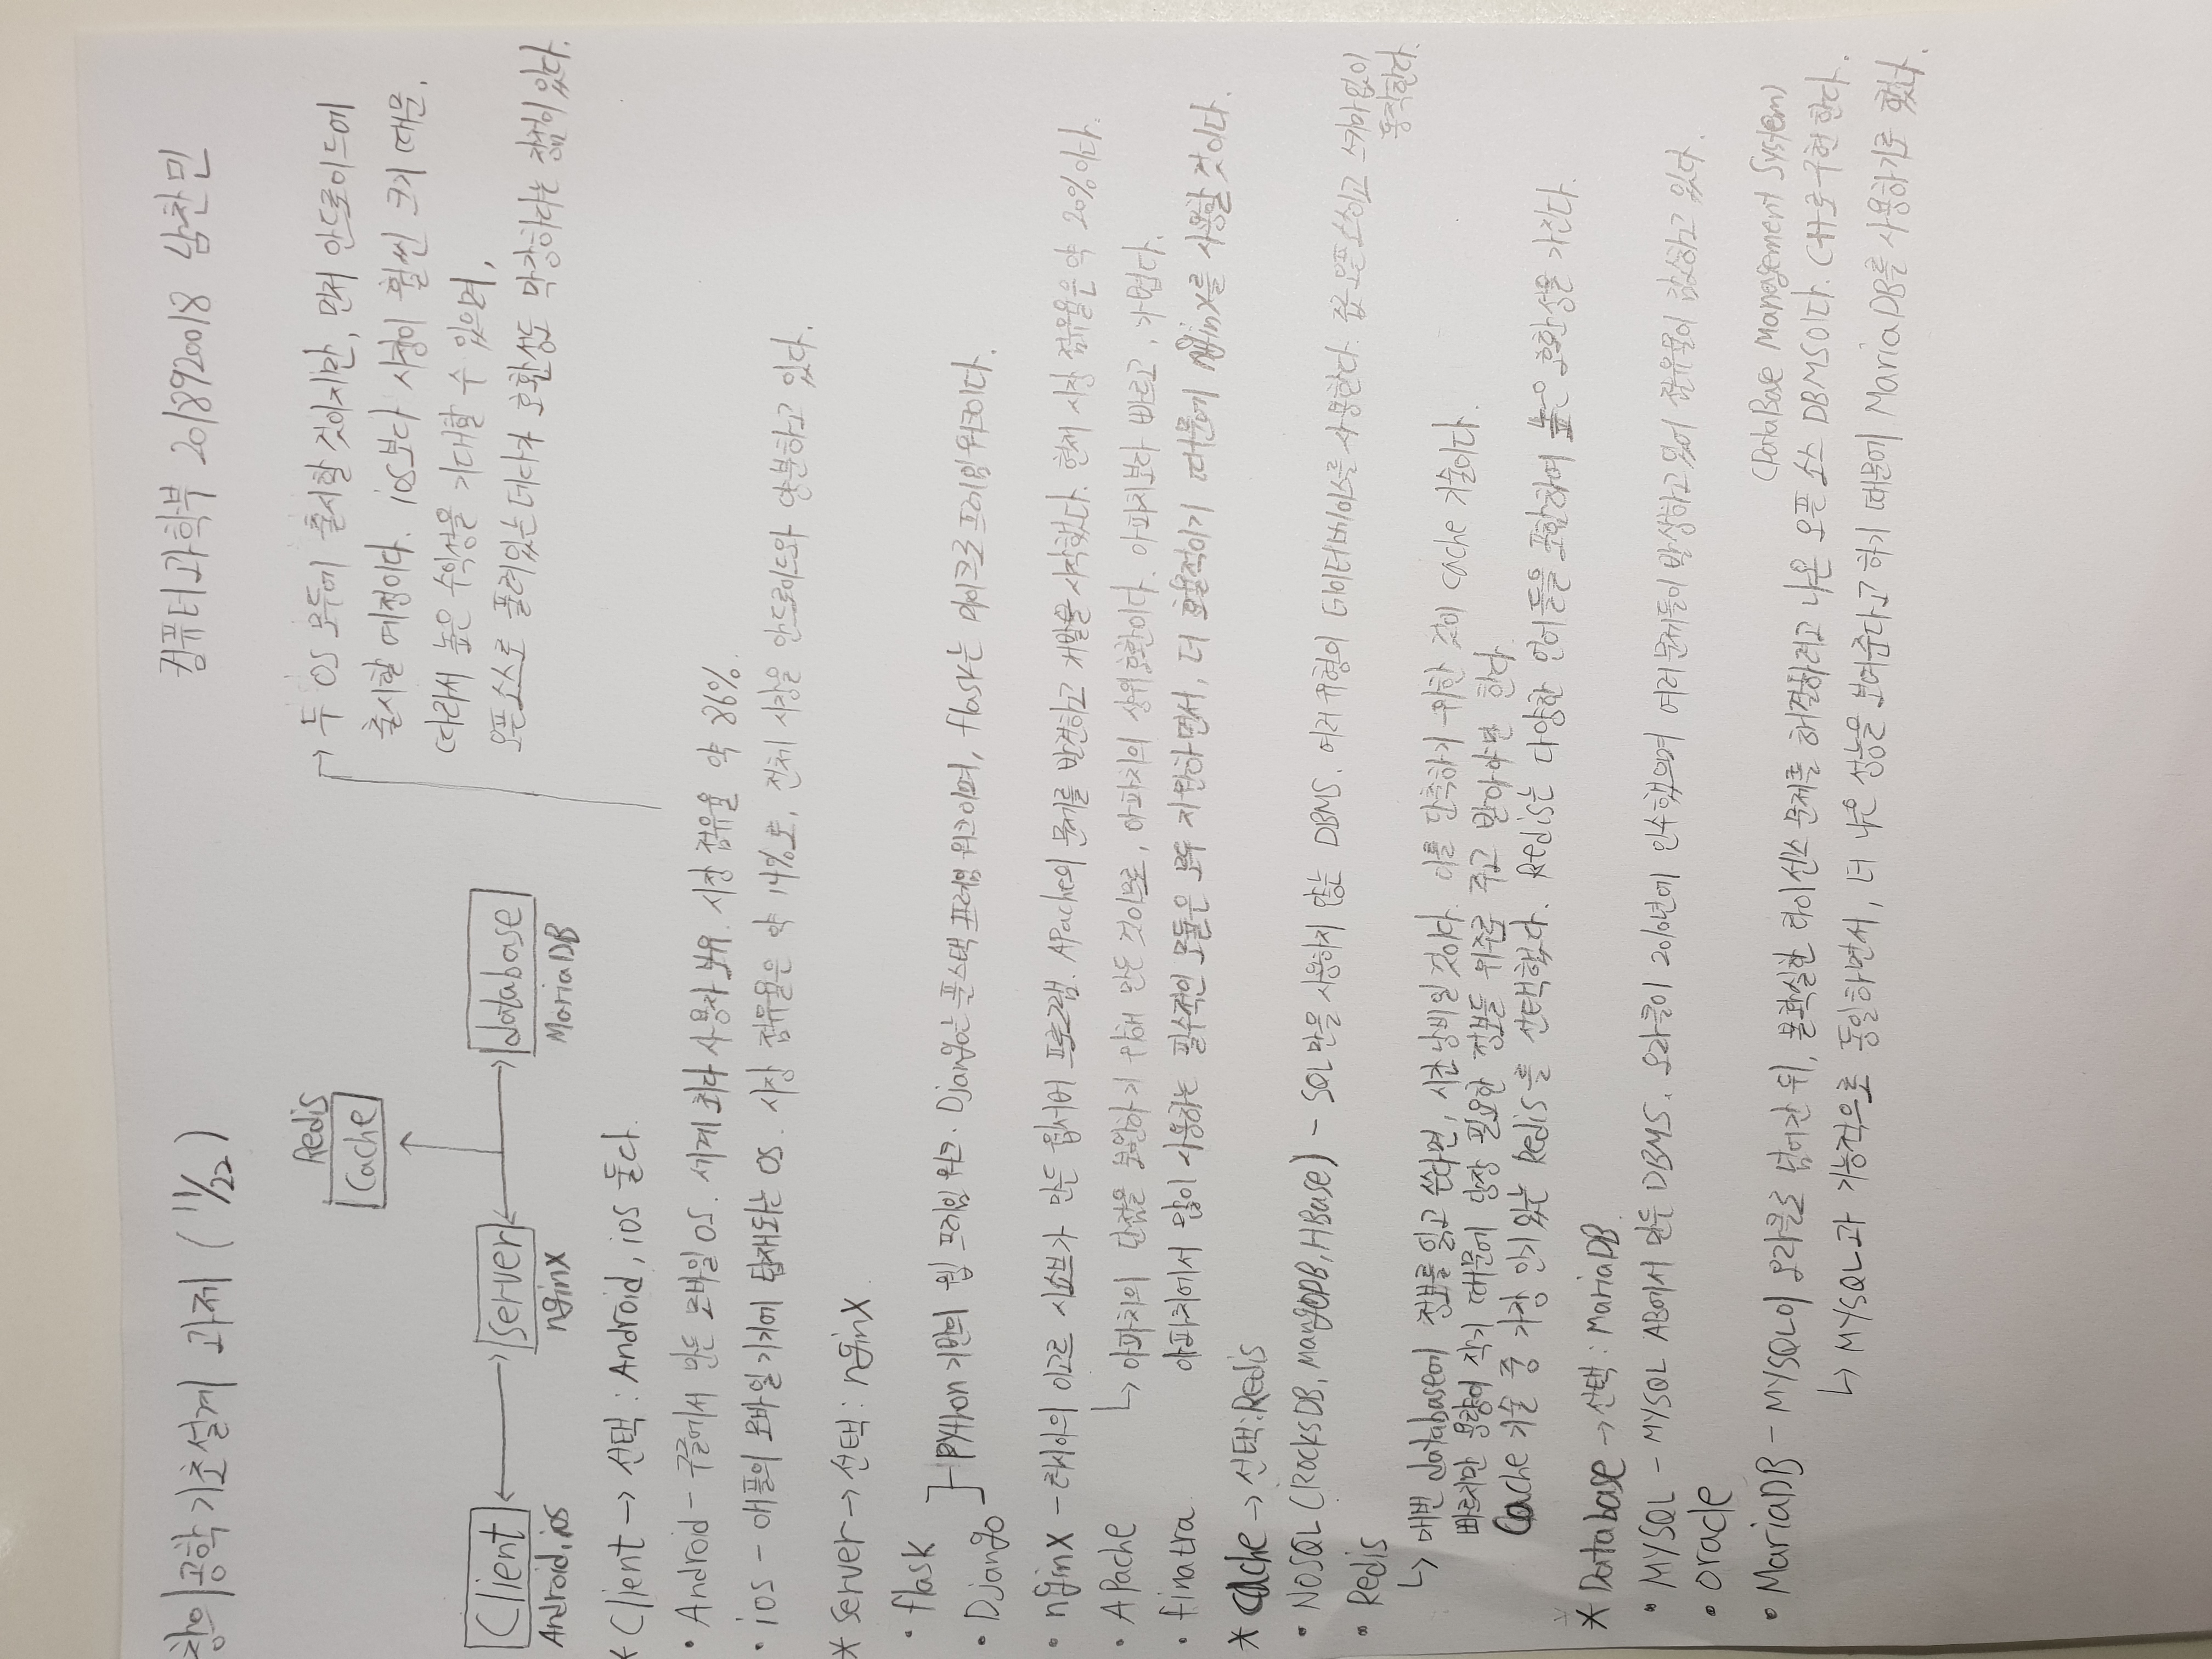 창의공학기초설계 과제 (11/22)
컴퓨터과학부 2018920018 남찬민
Redis
Cache
Client
server
database
Android, ios
nginx
MariaDB
두 OS 모두에 출시할 것이지만, 먼저 안드로이드에
출시할 예정이다. ios보다 시장이 훨씬 크기 때문.
따라서 높은 수익성을 기대할 수 있으며,
오픈소스로 풀려있는데다가 호환성도 막강하다는 장점이 있다.
* Client → 선택 : Android, ios 둘다.
• Android - 구글에서 만든 모바일 OS. 세계 최다 사용자 보유. 시장 점유율 약 86%.
• ios - 애플의 모바일 기기에 탑재되는 OS. 시장 점유율은 약 14%로, 전체 시장을 안드로이드와 양분하고 있다.
* server → 선택 : nginx
• flask
• Django
Python 기반의 웹 프레임 워크. Django는 풀스택 프레임 워크이며, flask는 마이크로 프레임 워크이다.
• nginx - 러시아의 이고르 시쇼브가 만든 웹서버 프로그램. Apache의 문제를 발견하고 개발을 시작했다. 현재 시장 점유율은 약 20%이다.
• Apache
↳ 아파치의 단점을 보완하기 위해 만든 것이므로, 아파치의 상위호환이다. 아파치보다 빠르고, 가볍다.
• finatra
아파치에서 많이 사용하는 필수적인 모듈은 모두 지원하면서, 더 효율적이기 때문에 nginx를 사용할 것이다.
* Cache → 선택:Redis
• NOSQL (RocksDB, MangoDB, HBase) - SQL만을 사용하지 않는 DBMS. 여러 유형의 데이터베이스를 사용한다. 오픈소스이고 스키마 없이
동작한다.
• Redis
↳ 매번 database에 정보를 읽고 쓴다면, 시간 낭비일 것이다. 이를 단축하기 위한 것이 cache 기술이다.
빠르지만 용량이 작기 때문에 당장 필요한 정보들 위주로 주고 받아야만 한다.
Cache 기술 중 가장 인기있는 Redis를 선택했다. Redis는 다양한 언어들을 포함하여 높은 호환성을 가진다.
* Database → 선택 : MariaDB.
• MYSQL - MYSQL AB에서 만든 DBMS. 오라클이 2010년에 인수했으며 여러 문제들이 발생하고 있어 점유율이 감소하고 있다.
• oracle
(DataBase Management System)
• MariaDB - MYSQL이 오라클로 넘어간 뒤, 불확실한 라이센스 문제를 해결하려고 나온 오픈 소스 DBMS이다. C++로 구현한다.
↳ MYSQL과 기능적으로 동일하면서, 더 나은 성능을 보여준다고 하기 때문에 MariaDB를 사용하기로 했다.